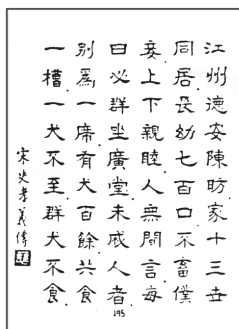 江州德安陳昉家十三世
同居長幼七百口不畜僕
妾上下親睦人無間言每
日必群坐廣堂未成人者
別爲一席有犬百餘共食
一槽一犬不至群犬不食
宋史孝義傳
195